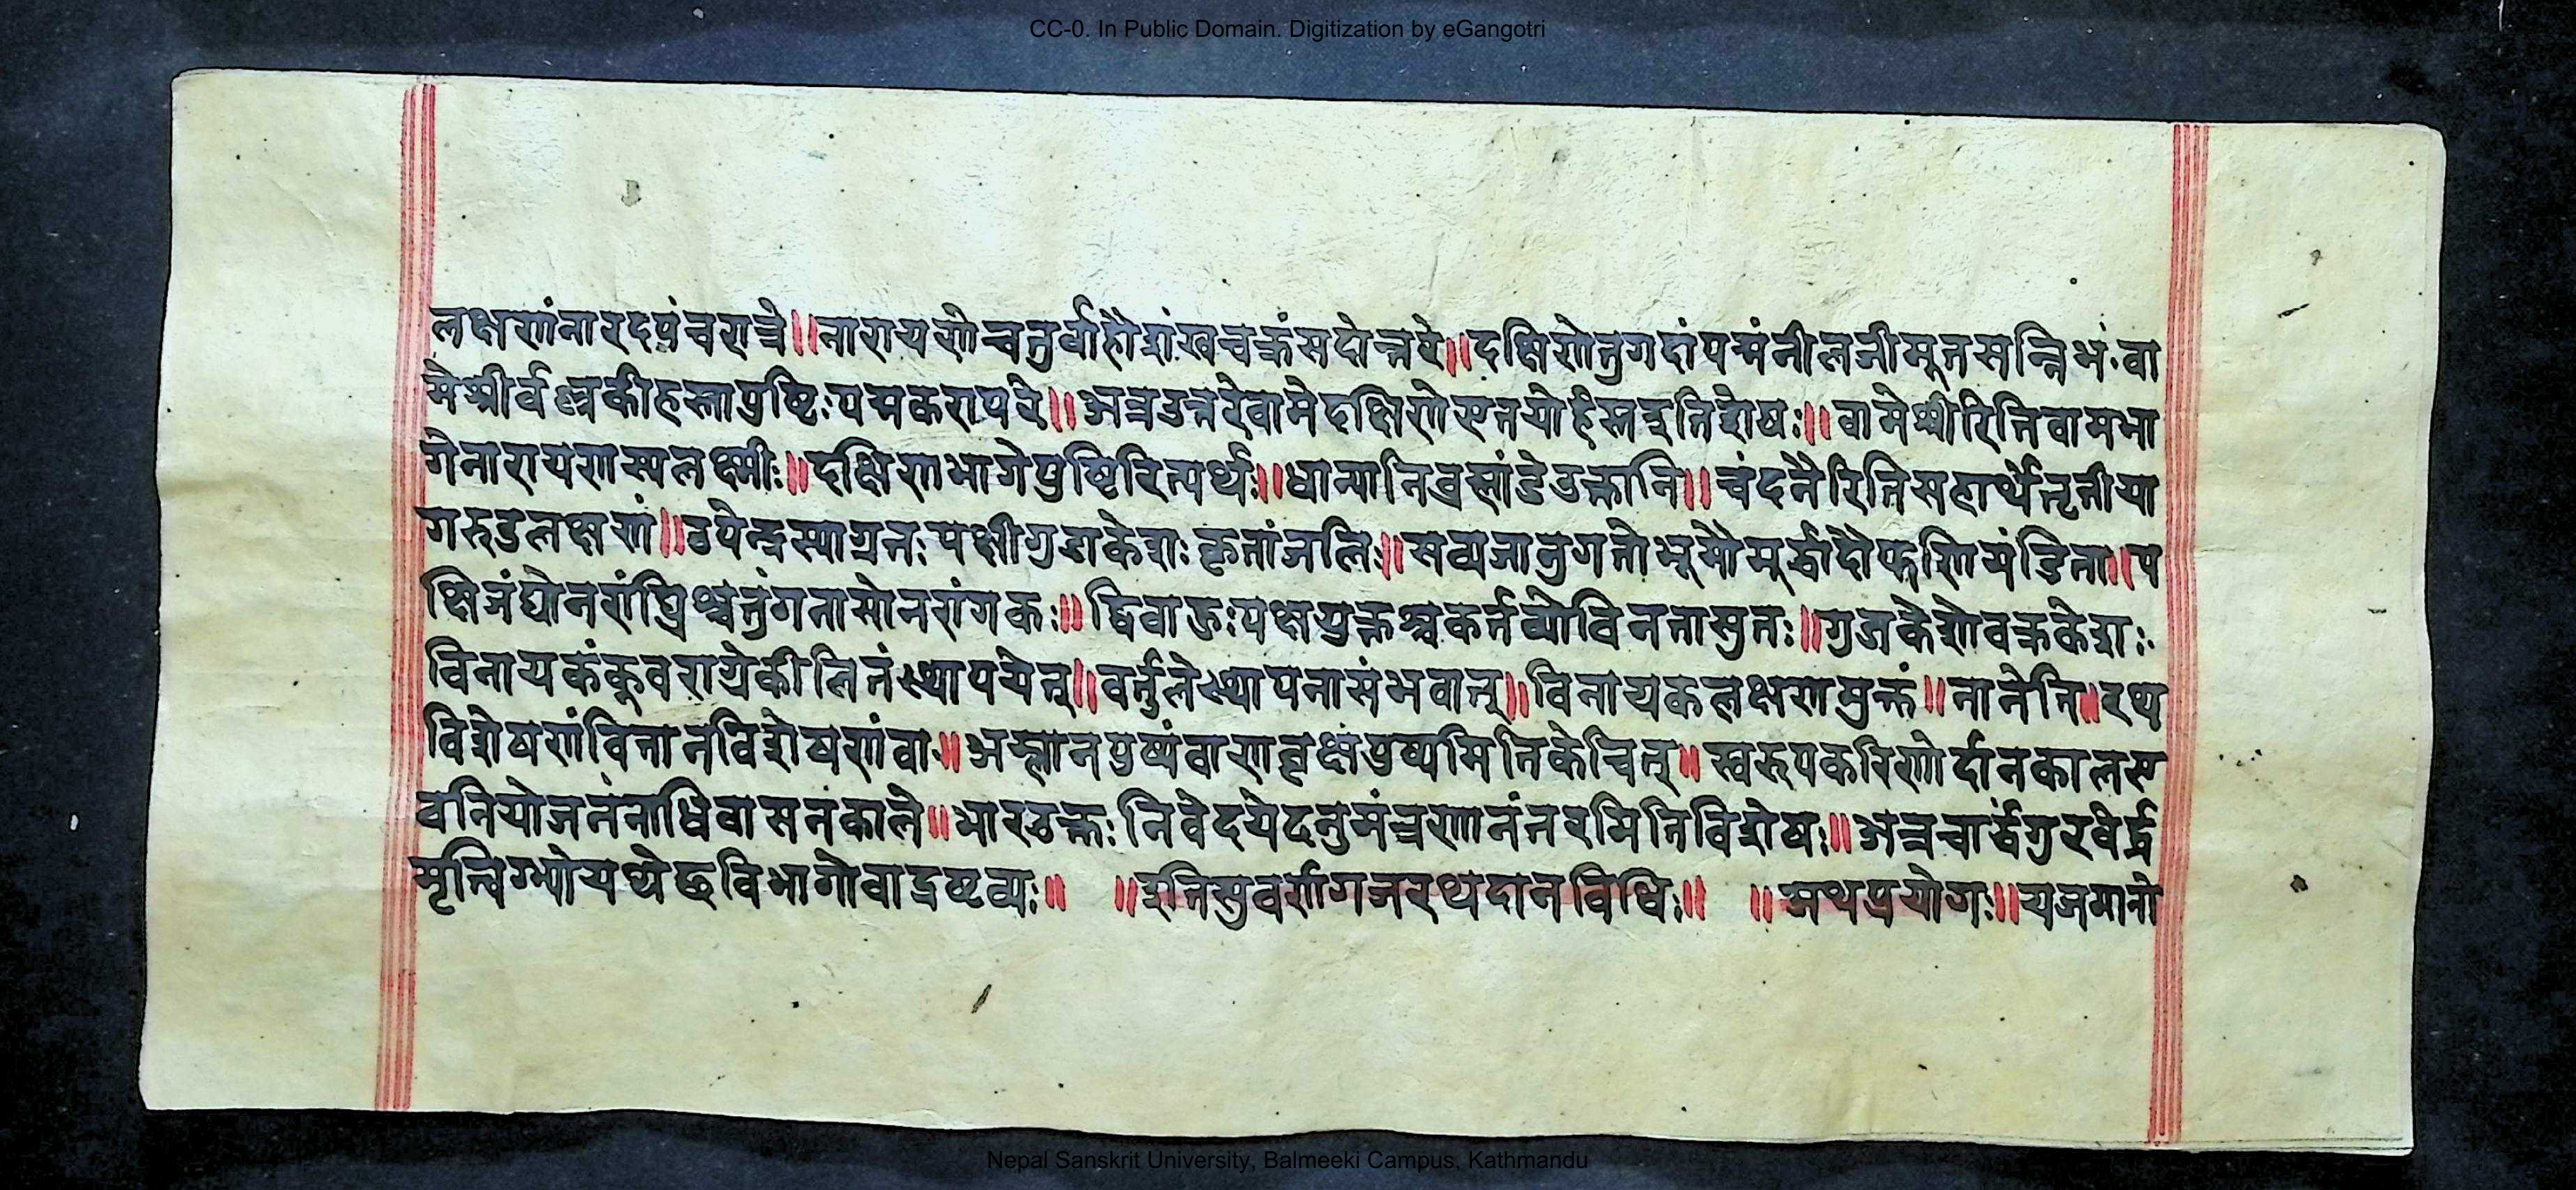 CC-0. In Public Domain. Digitization by eGangotri
लक्षणंनारदपंचरात्रे॥नारायणेचतुर्वाहौशंखचक्रंसदोत्तरे॥दक्षिणेतुगदांपद्मंनीलजीमूतसन्निभं.वा
मेश्रीर्वल्लकीहस्तापुष्टिःपद्मकरापरे॥अत्रउत्तरेवामेदक्षिणेएतयोर्हस्तइतिशेषः॥वामेश्रीरितिवामभा
गेनारायणस्यलक्ष्मीः॥दक्षिणभागेपुष्टिरित्यर्थः॥धान्यानिब्रह्मांडेउक्तानि॥चंदनैरितिसहार्थेतृतीया
गरुडलक्षणं॥उपेन्द्रस्याग्रतःपक्षीगुडाकेशःकृतांजलिः॥सव्यजानुगतोभूमौमूर्द्धादौफणिमंडिता॥प
क्षिजंघोनरांघ्रिश्चतुंगनासोनरांगकः॥द्विवाहुःपक्षयुक्तश्चकर्त्तव्योविनतासुतः॥गुडाकेशोवक्रकेशः
विनायकंकूवराग्रेकीलितंस्थापयेत्॥वर्तुलेस्थापनासंभवात्॥विनायकलक्षणमुक्तं॥नानेति॥रथ
विशेषणंवितानविशेषणंवा॥अम्लानपुष्पंवाणवृक्षपुष्पमितिकेचित्॥स्वरूपकरिणोर्दानकालए
वनियोजनंनाधिवासनकाले॥भारउक्तःनिवेदयेदनुमंत्रणानंतरमितिविशेषः॥अत्रचार्द्धंगुरवेर्द्ध
मृत्विग्भ्योयथेष्टविभागोवाद्रष्टव्यः॥ ॥इतिसुवर्णगजरथदानविधिः॥ ॥अथप्रयोगः॥यजमानो
Nepal Sanskrit University, Balmeeki Campus, Kathmandu